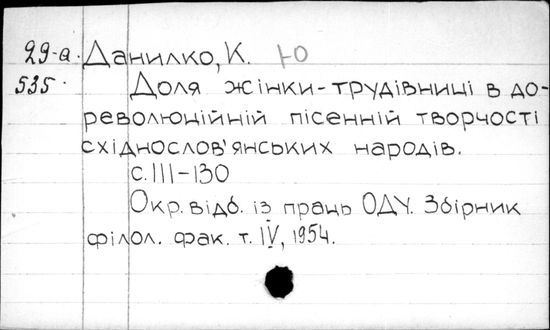 29-а. Данилко, К. Ю
535. Доля жінки-трудівниці в до-
революційній пісенній творчості
східнослов'янських народів.
с. 111-130
Окр. відб. із праць ОДУ. Збірник
філол. фак. т. IV, 1954.